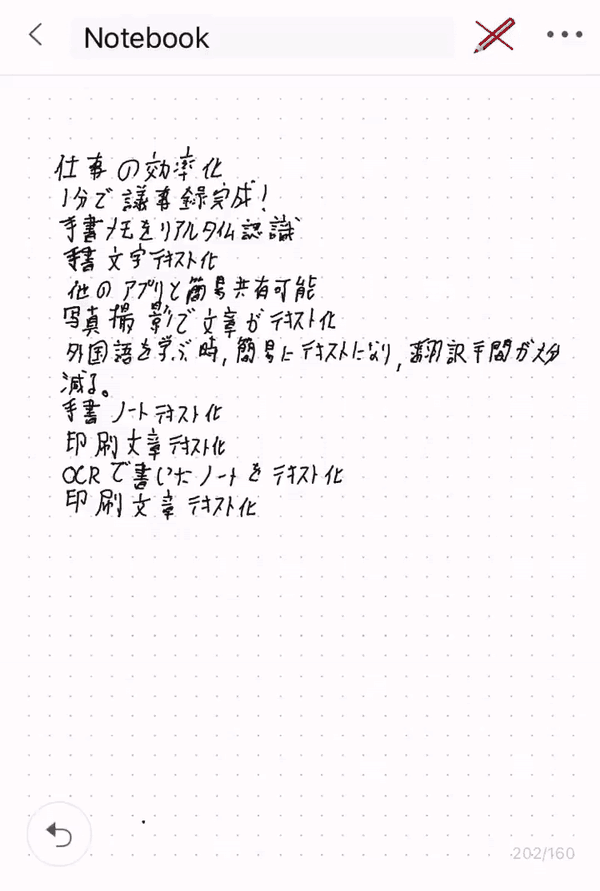 Notebook
仕事の効率化
1分で議事録完成!
手書メモをリアルタイム認識
手書文字テキスト化
他のアプリと簡易共有可能
写真撮影で文章がテキスト化
外国語を学ぶ時,簡易にテキストになり,翻訳手間が大分
減る。
手書ノートテキスト化
印刷文章テキスト化
OCRで書いたノートをテキスト化
印刷文章テキスト化
202/160